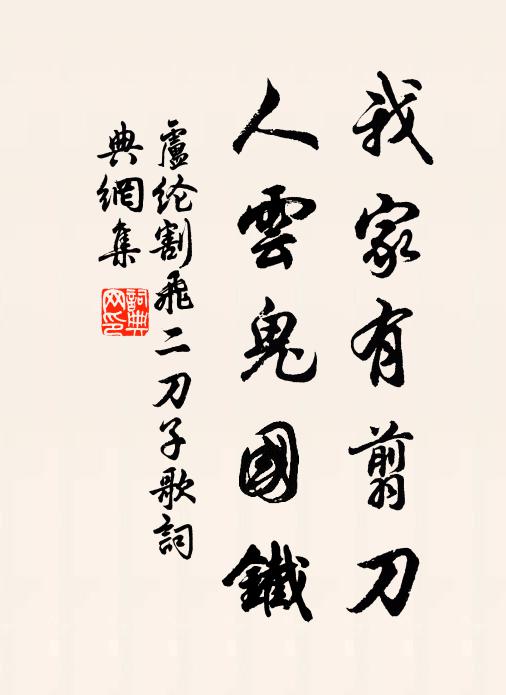 我家有翦刀
人雲鬼國鐵
盧纶割飛二刀子歌詞
典網集
詞典
网印